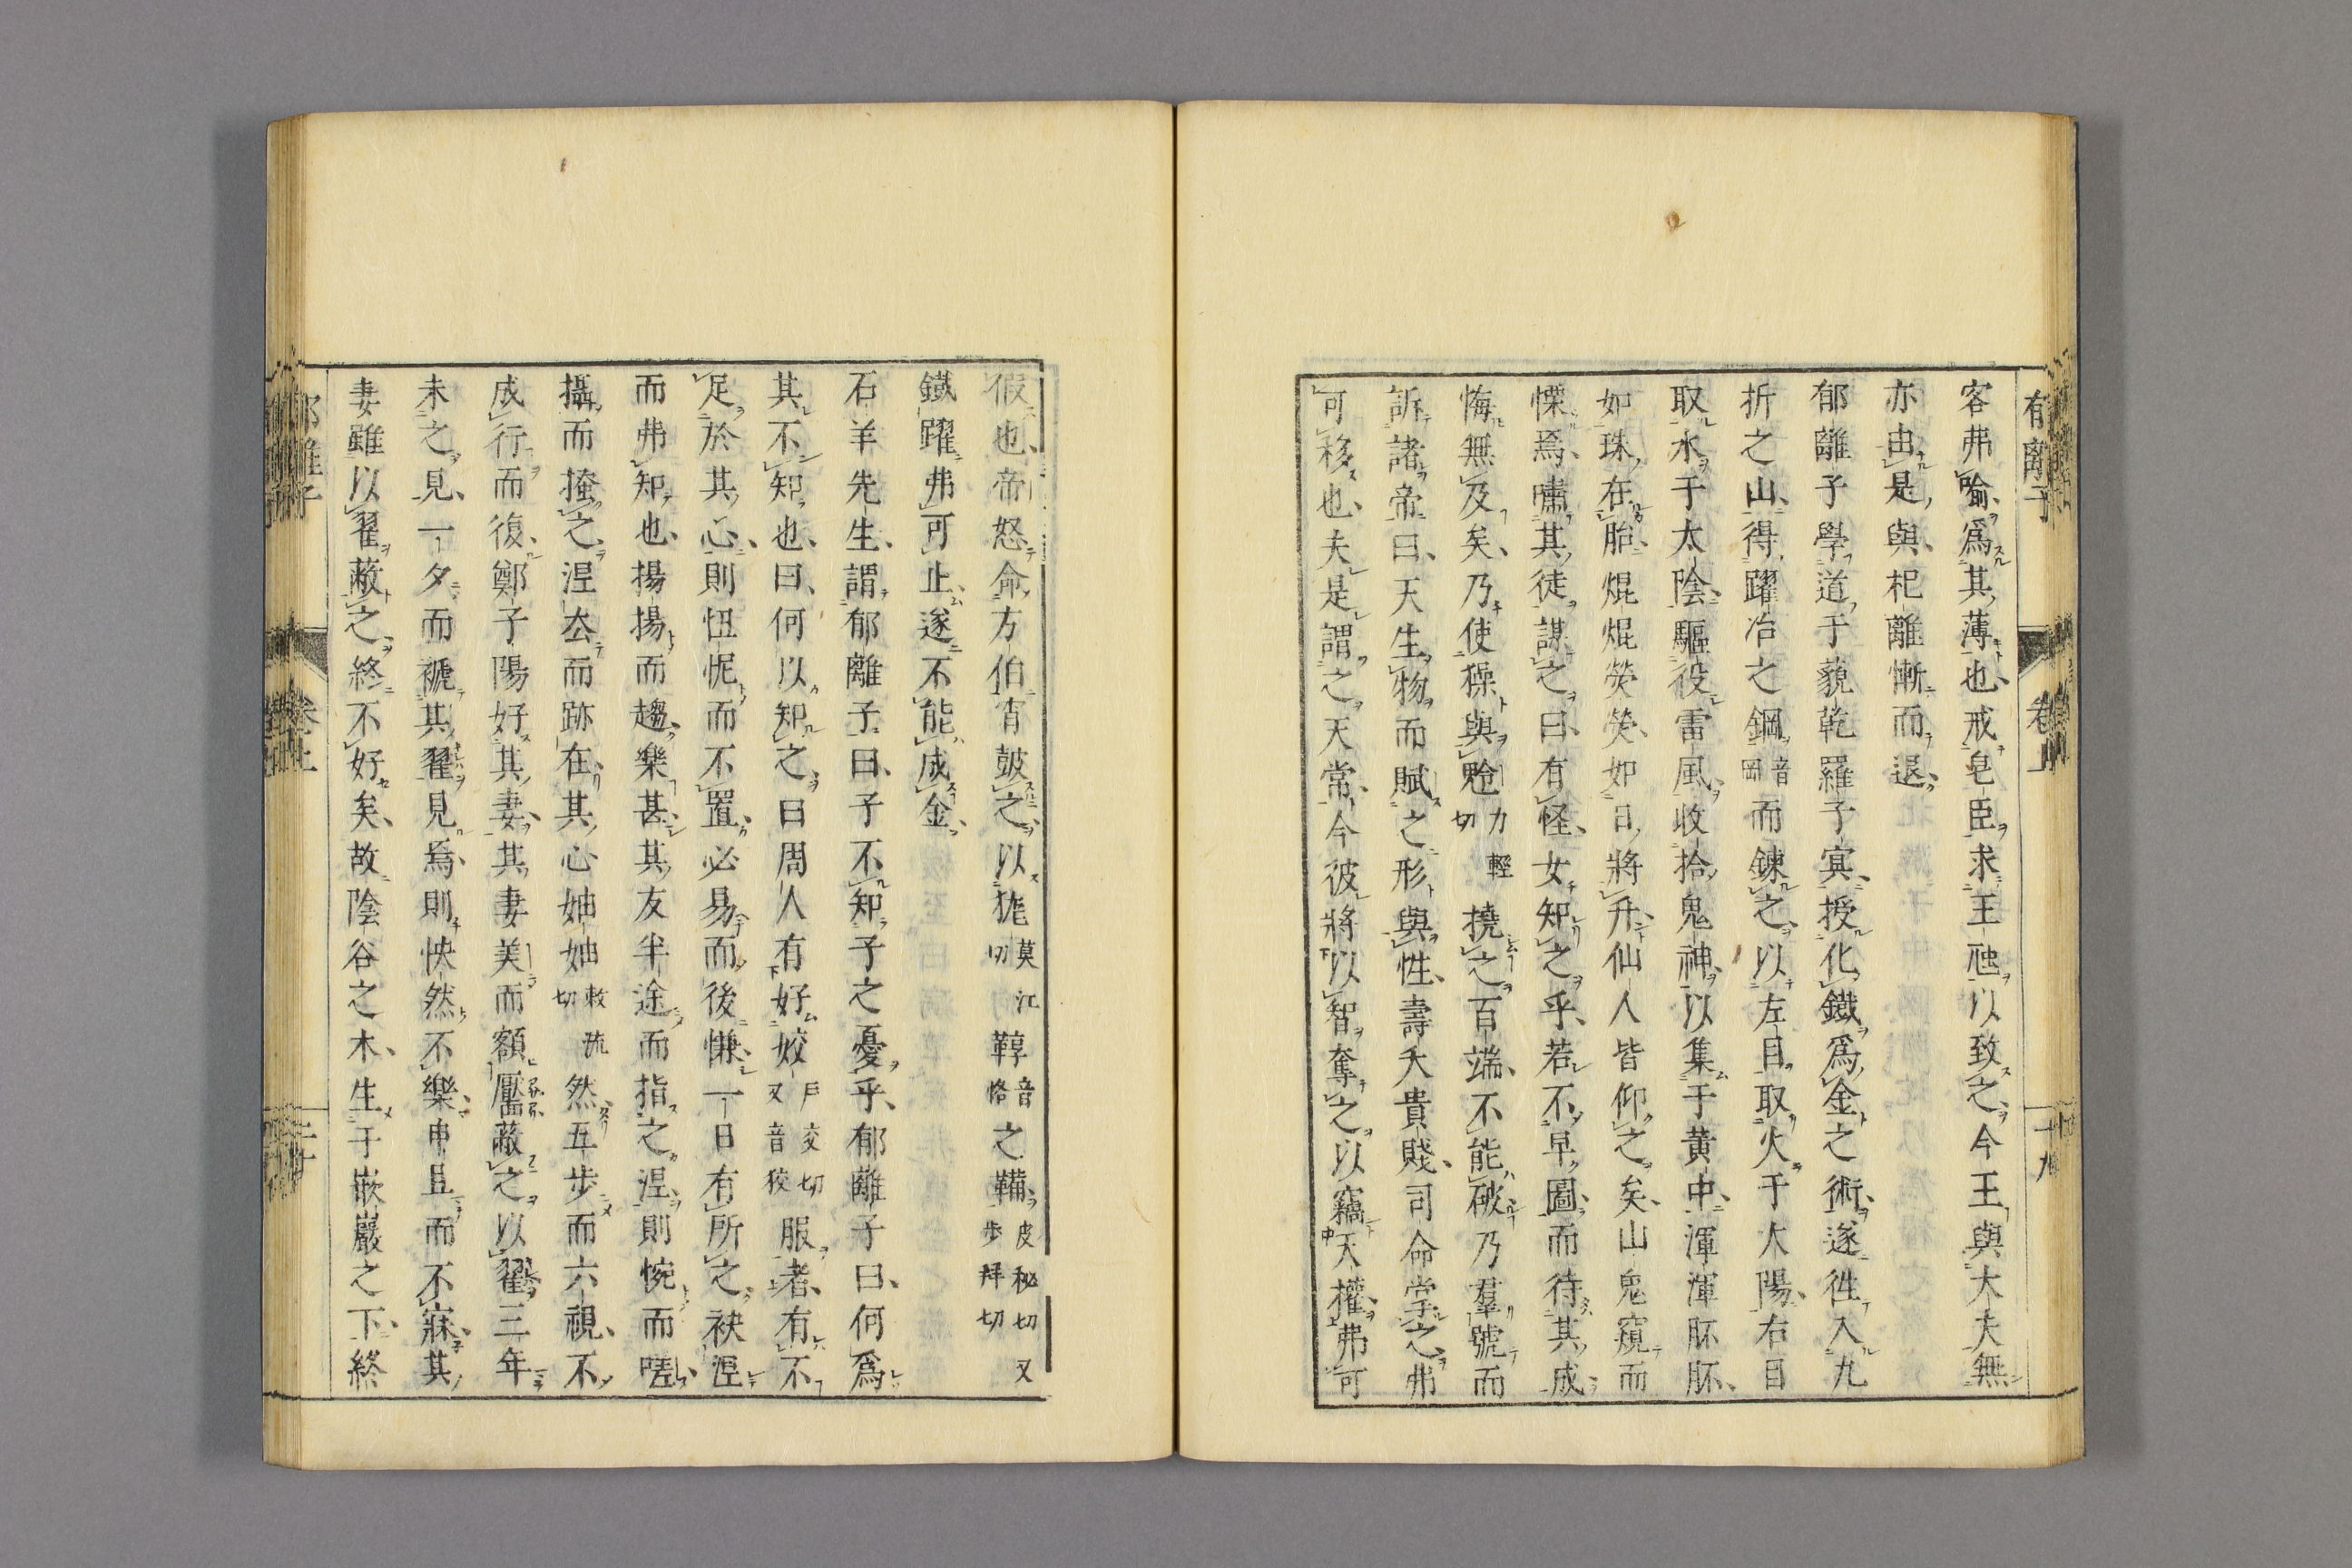 客弗喩爲其薄也戒皂臣求王虵以致之今王與大夫無
亦由是與杞離慚而退
郁離子學道于藐乾羅子寞授化鐵爲金之術遂徃入九
折之山得躍冶之鋼音岡而鍊之以左目取火于太陽右目
取水于太陰驅役雷風收拾鬼神以集于黄中渾渾肧肧
如珠在胎焜焜熒熒如日將升仙人皆仰之矣山鬼窺而
慄焉嘯其徒謀之曰有怪女知之乎若不早圖而待其成
悔無及矣乃使操與魊力輕切撓之百端不能破乃羣號而
訴諸帝曰天生物而賦之形與性壽夭貴賤司命掌之弗
可移也夫是謂之天常今彼將以智奪之以竊天權弗可
假也帝怒命方伯宵皷之以狵莫江切䩲音格之鞴皮秘切又步拜切
鐵躍弗可止遂不能成金
石羊先生謂郁離子曰子不知子之憂乎郁離子曰何爲
其不知也曰何以知之曰周人有好姣戶交切又音狡服者有不
足於其心則忸怩而不置必易而後慊一日有所之袂涅
而弗知也揚揚而趨樂甚其友半途而指之涅則惋而嗟
攝而掩之涅厺而跡在其心妯妯敕流切然五步而六視不
成行而復鄭子陽好其妻其妻美而額靨蔽之以翟三年
未之見一夕而褫其翟見焉則怏然不樂申旦而不寐其
妻雖以翟蔽之終不好矣故陰谷之木生于嵌巖之下終
郁離子 卷上